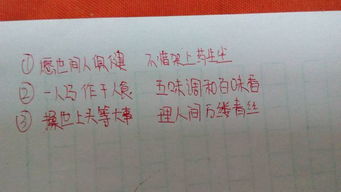 ① 愿世间人俱健 不惜架上药生尘
② 一人写作千人食 五味调和百味香
③ 操世上头等大事 理人间万缕青丝